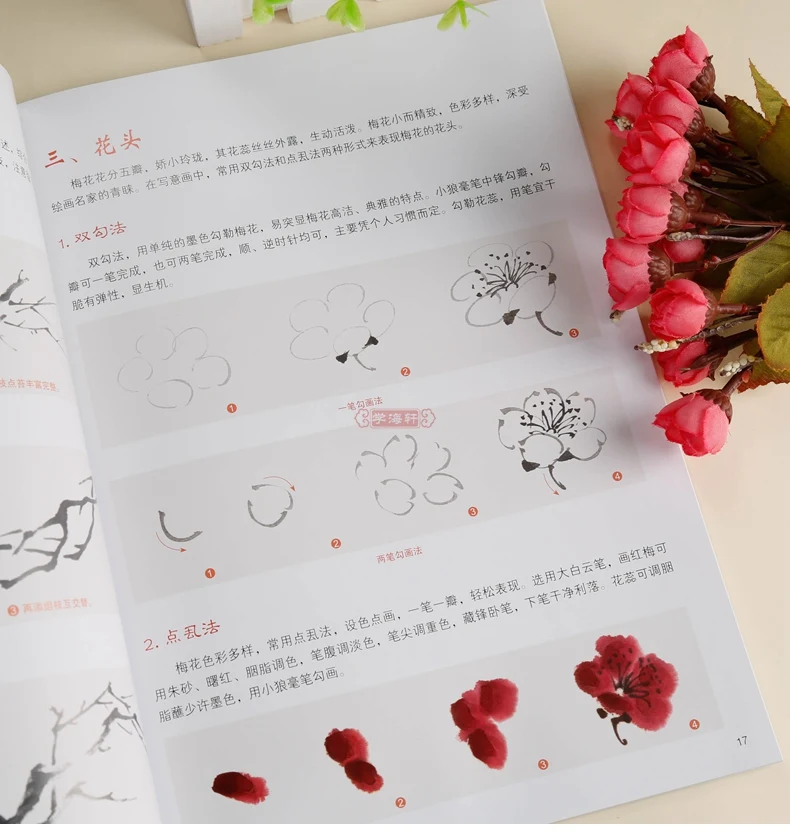 三、花头
梅花花分五瓣，娇小玲珑，其花蕊丝丝外露，生动活泼。梅花小而精致，色彩多样，深受
绘画名家的青睐。在写意画中，常用双勾法和点厾法两种形式来表现梅花的花头。
1. 双勾法
双勾法，用单纯的墨色勾勒梅花，易突显梅花高洁、典雅的特点。小狼毫笔中锋勾瓣，勾
瓣可一笔完成，也可两笔完成，顺、逆时针均可，主要凭个人习惯而定。勾勒花蕊，用笔宜干
脆有弹性，显生机。
1
2
3
一笔勾画法
学海轩
1
2
3
4
两笔勾画法
2. 点厾法
梅花色彩多样，常用点厾法，设色点画，一笔一瓣，轻松表现。选用大白云笔，画红梅可
用朱砂、曙红、胭脂调色，笔腹调淡色，笔尖调重色，藏锋卧笔，下笔干净利落。花蕊可调胭
脂蘸少许墨色，用小狼毫笔勾画。
2
3
4
17